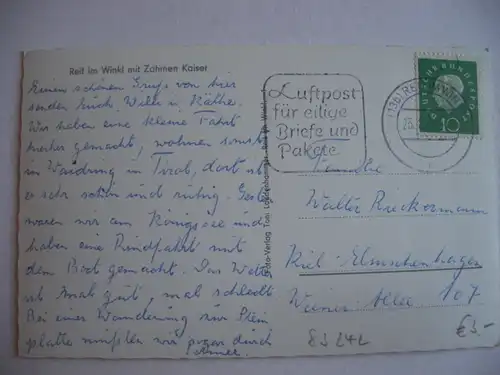 Reit im Winkl mit Zahmen Kaiser
Einen schönen Gruß von hier
senden Euch Willi u. Käthe.
Wir haben eine kleine Fahrt
hierher gemacht, wohnen sonst
in Waidring in Tirol, dort ist
es sehr schön und ruhig.
waren wir am Königssee und
haben eine Rundfahrt mit
dem Boot gemacht. Das Wetter
ist mal gut, mal schlecht
Bei einer Wanderung zur Stein
platte mußten wir sogar durch
Luftpost
für eilige
Briefe und
Pakete
DEUTSCHE BUNDESPOST
10
Familie
Walter
Kiel-Elmschenhagen
Wiener Allee 107
83242
€3-